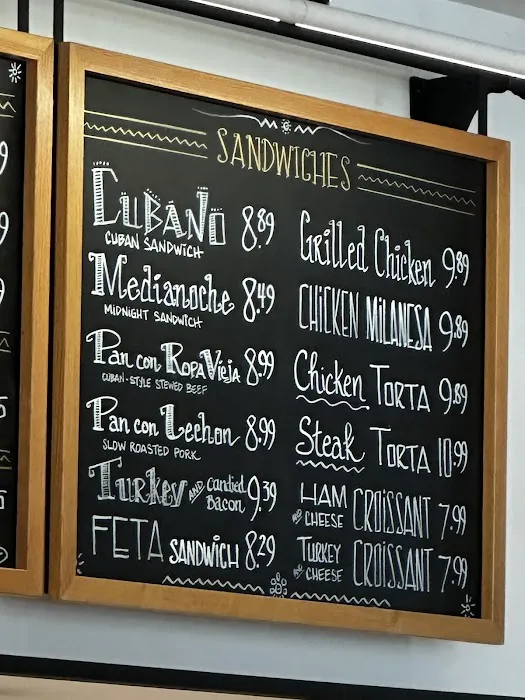 SANDWICHES
CUBANO 8.89
CUBAN SANDWICH
Medianoche 8.49
MIDNIGHT SANDWICH
Pan con Ropa Vieja 8.99
CUBAN-STYLE STEWED BEEF
Pan con Lechon 8.99
SLOW ROASTED PORK
Turkey AND Candied Bacon 9.39
FETA SANDWICH 8.29
Grilled Chicken 9.89
CHICKEN MILANESA 9.89
Chicken TORTA 9.89
Steak TORTA 10.99
HAM AND CHEESE CROISSANT 7.99
TURKEY AND CHEESE CROISSANT 7.99